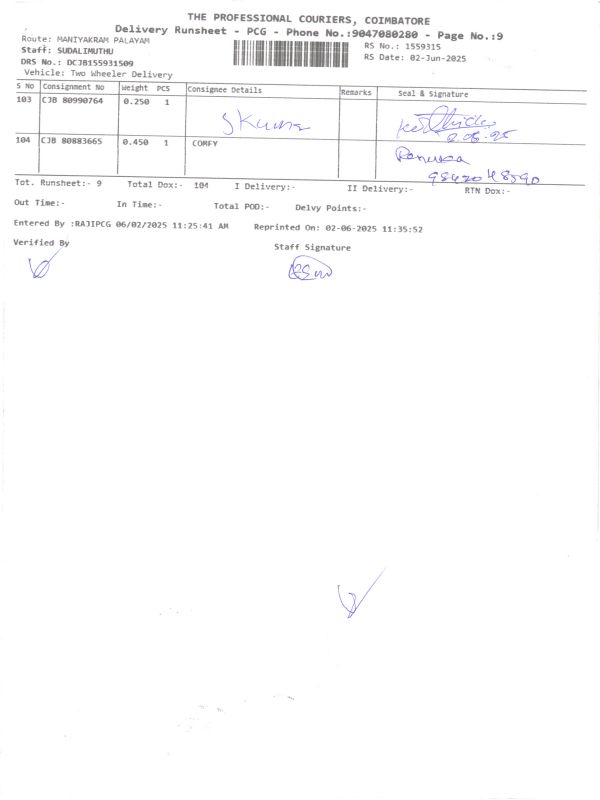 THE PROFESSIONAL COURIERS, COIMBATORE
Delivery Runsheet - PCG - Phone No.:9047080280 - Page No.:9
Route: MANIYAKRAM PALAYAM
RS No.: 1559315
Staff: SUDALIMUTHU
RS Date: 02-Jun-2025
DRS No.: DCJB155931509
Vehicle: Two Wheeler Delivery
S No Consignment No Weight PCS Consignee Details Remarks Seal & Signature
103 CJB 80990764 0.250 1
S Kumar
104 CJB 80883665 0.450 1 COMFY
Tot. Runsheet:- 9 Total Dox:- 104 I Delivery:- II Delivery:- RTN Dox:-
Out Time:- In Time:- Total POD:- Delvy Points:-
Entered By :RAJIPCG 06/02/2025 11:25:41 AM Reprinted On: 02-06-2025 11:35:52
Verified By Staff Signature